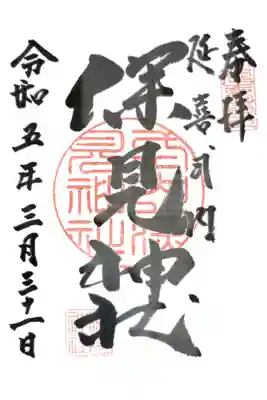 奉拝
延喜式内
深見神社
令和五年三月三十一日